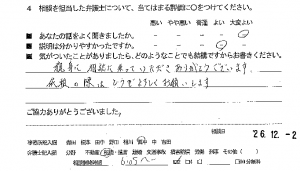 4 相談を担当した弁護士について、当てはまる評価に○をつけてください。
悪い やや悪い 普通 よい 大変よい
■ あなたの話をよく聞きましたか。
■ 説明は分かりやすかったですか。
■ 気がついたことがありましたら、どのようなことでも結構ですからお書きください。
親身に相談に乗っていただきありがとうございます。
依頼の際はどうぞよろしくお願いします
ご協力ありがとうございました。
相談日
26.12.-2
弁護士記入欄
不動産 相続
6:05～